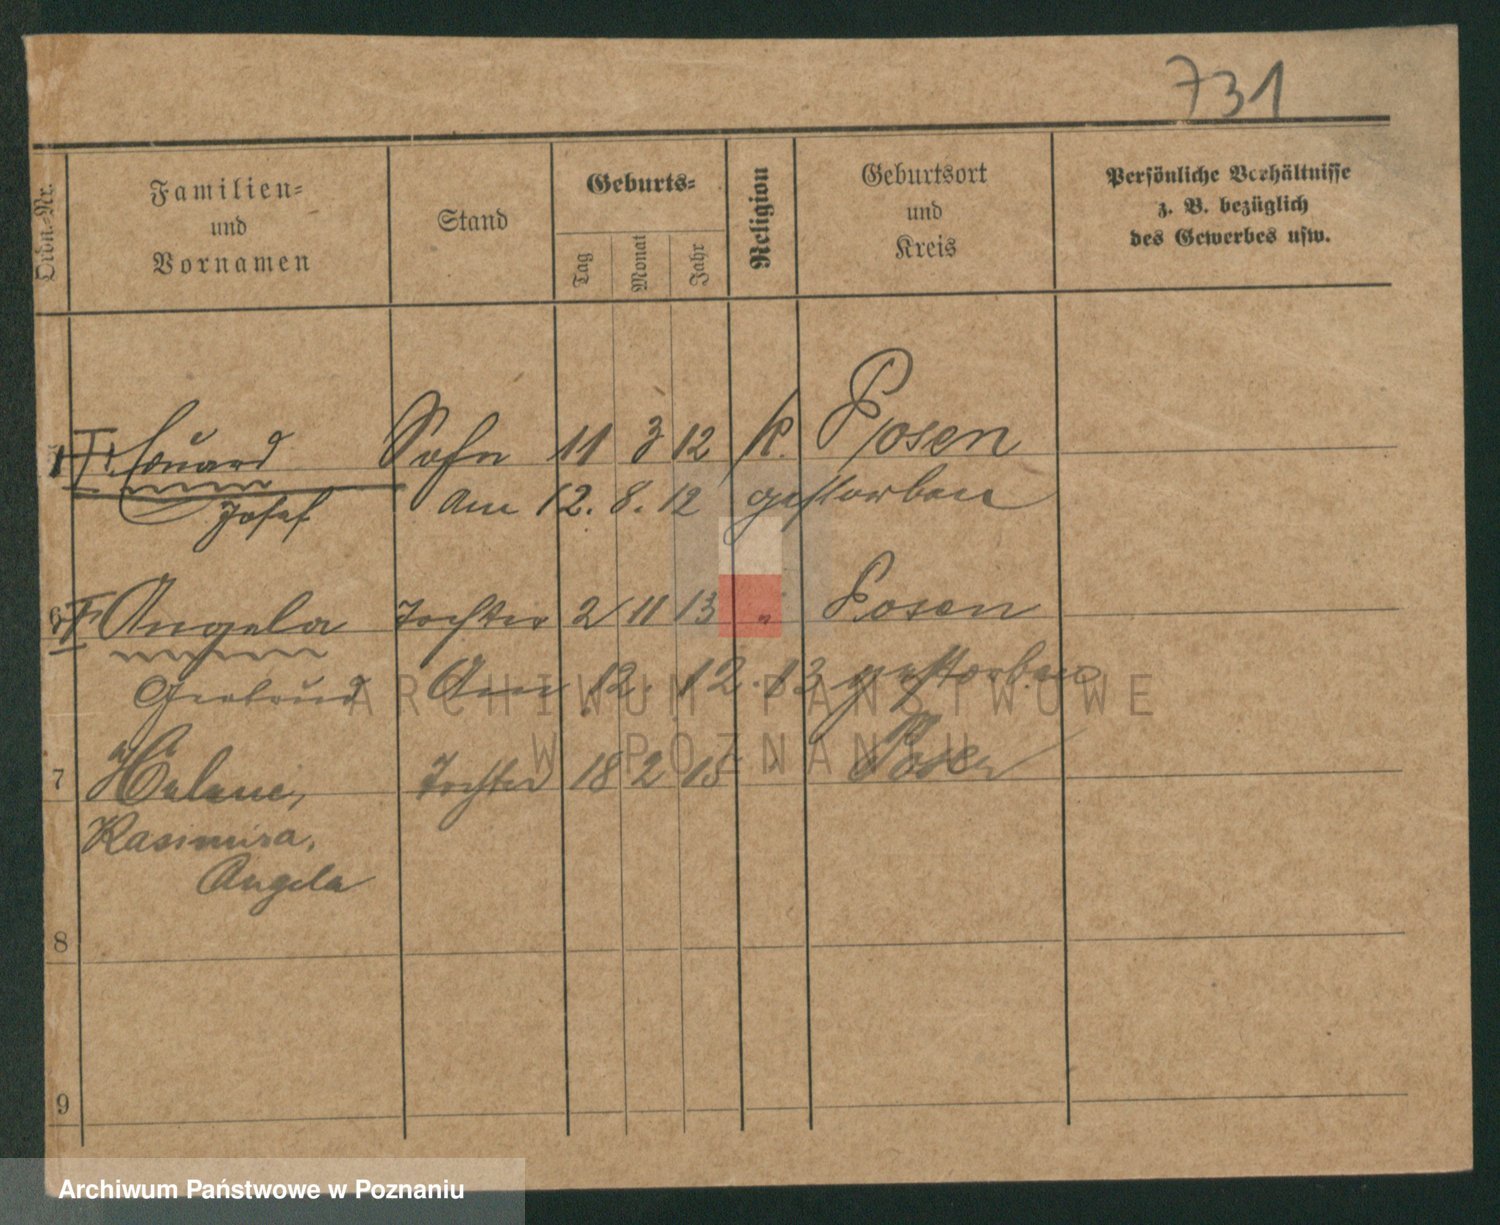 731
Ordn.-Nr.
Familien-
und
Vornamen
Stand
Geburts-
Tag
Monat
Jahr
Religion
Geburtsort
und
Kreis
Persönliche Verhältnisse
z. B. bezüglich
des Gewerbes usw.
Eduard Sohn 11 3 12 k. Posen
Josef Am 12. 8. 12 gestorben
6 Angela Tochter 2 11 13 " Posen
Gertrud Am 12. 12. 13 gestorben
7 Helene, Tochter 18 2 15 " Posen
Kasimira,
Angela
8
9
ARCHIWUM PAŃSTWOWE
W POZNANIU
Archiwum Państwowe w Poznaniu